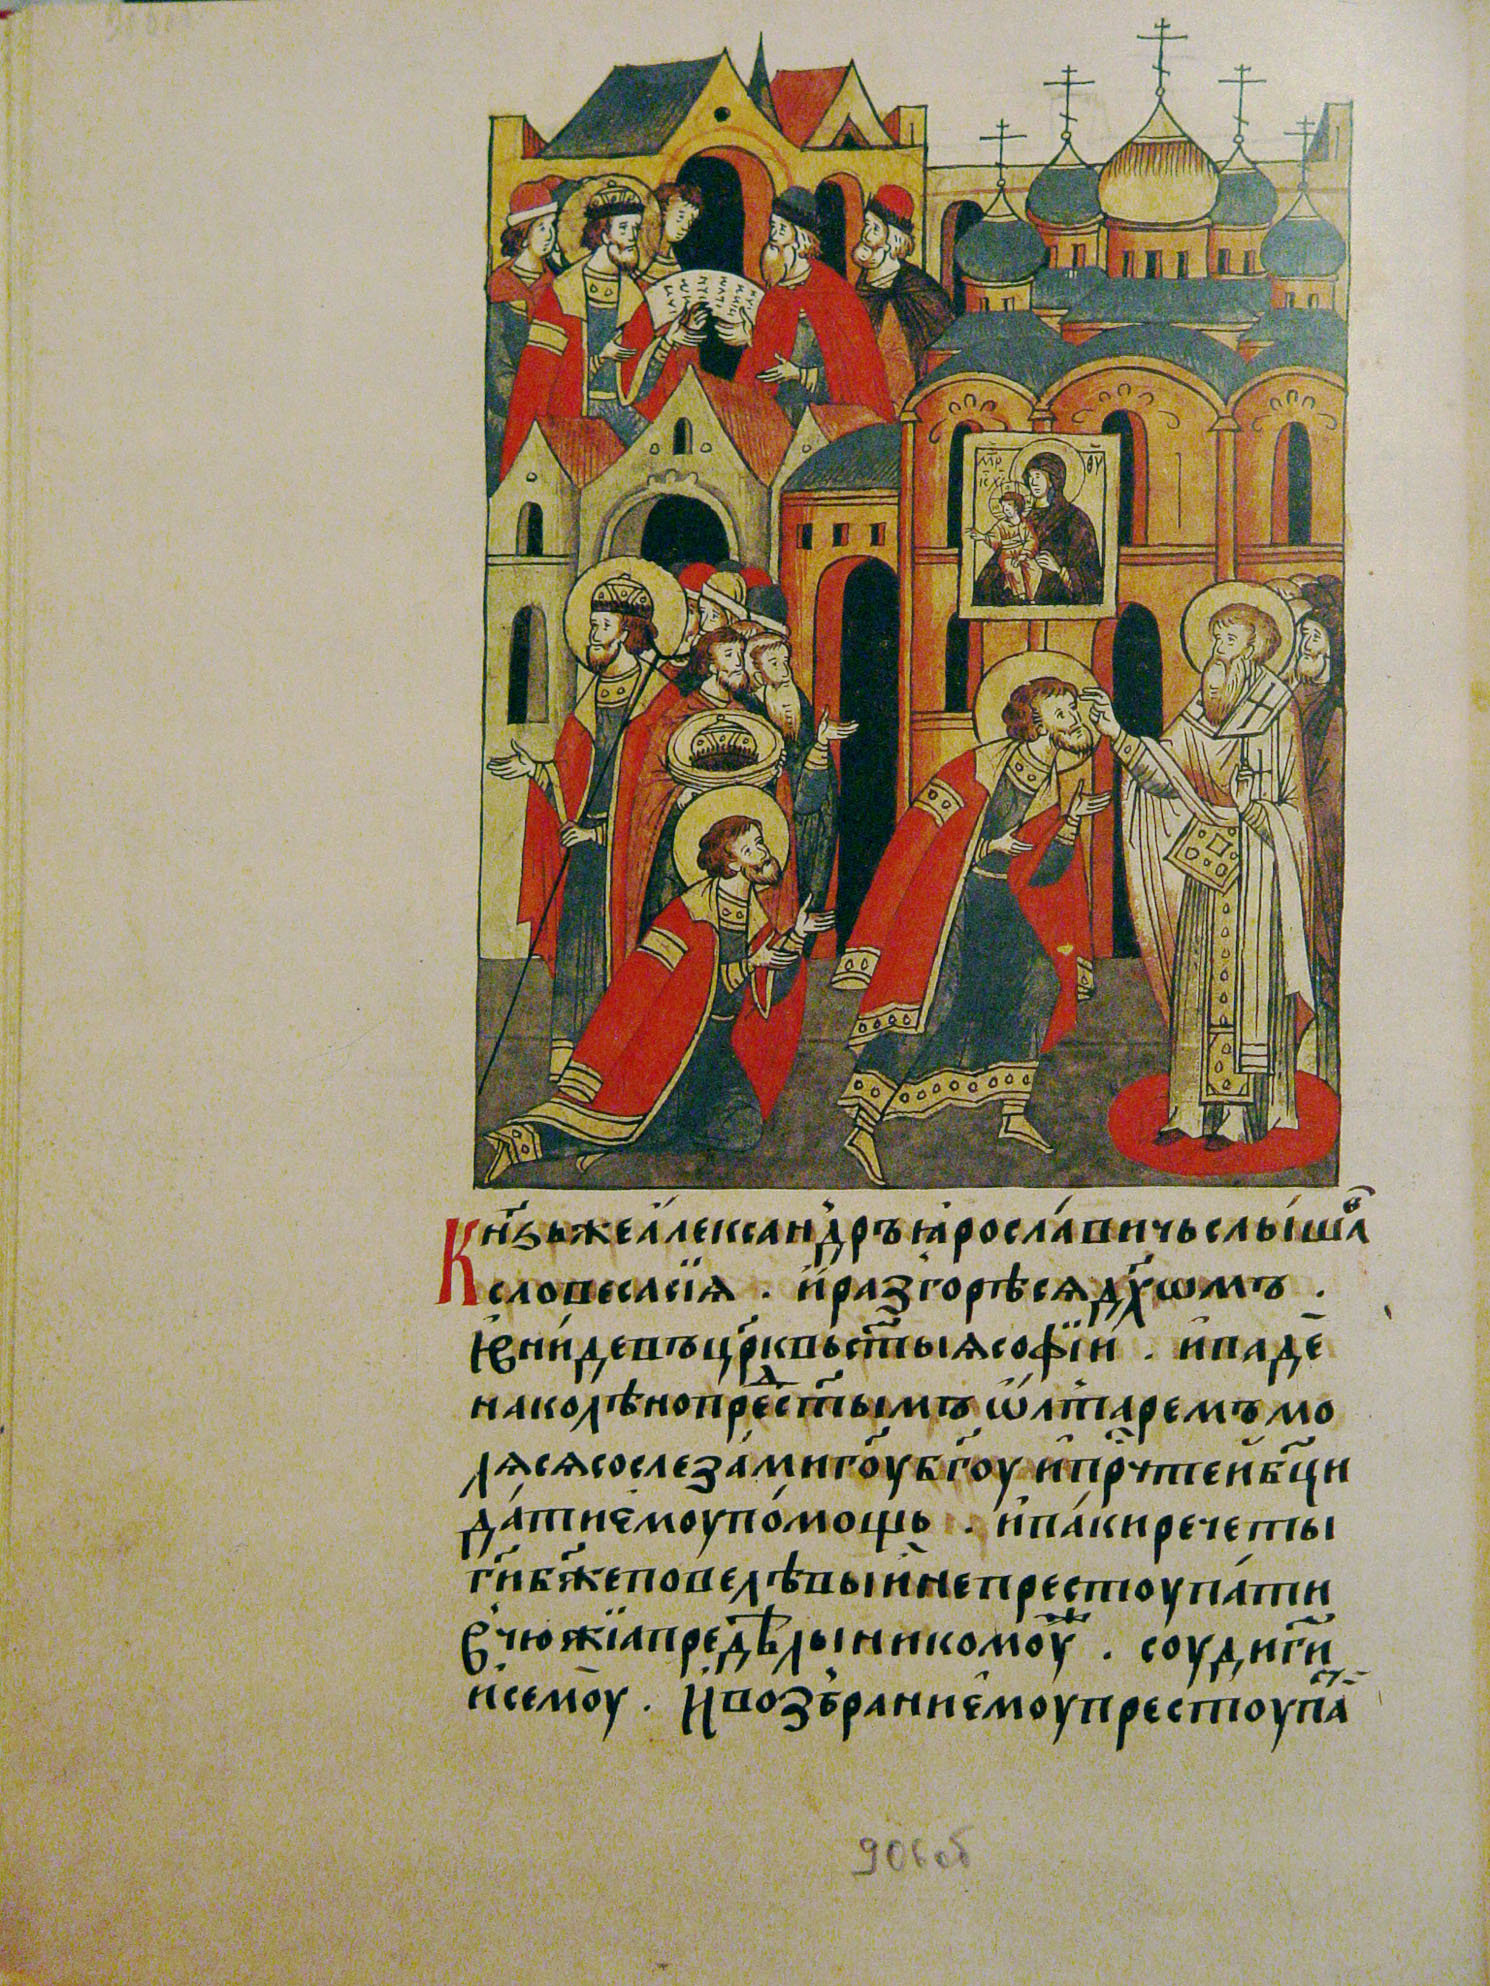 МР҃ ѲУ҃
ІС҃ ХС҃
Кнѧ҃зь же а҆леѯандръ ꙗ҆росла́вичь слы́шавъ
словеса сїѧ . и҆ разгорѣсѧ дх҃омъ .
и҆ вни́де въ цр҃квь ст҃ыѧ софїи . и҆ паде
на колѣно пред ст҃ымъ ѡ҆лтаремъ мо
лѧсѧ со слеза́ми гд҃оу бг҃оу и҆ прч҃тей бц҃и
да́ти є҆моу по́мощь . и҆ па́ки рече ты
гд҃и бж҃е повелѣвый не престоупа́ти
в чюжїа предѣлы никомоу́же . соуди гд҃и
и҆ семоу . и҆ возбрани є҆моу престоупа
90 об